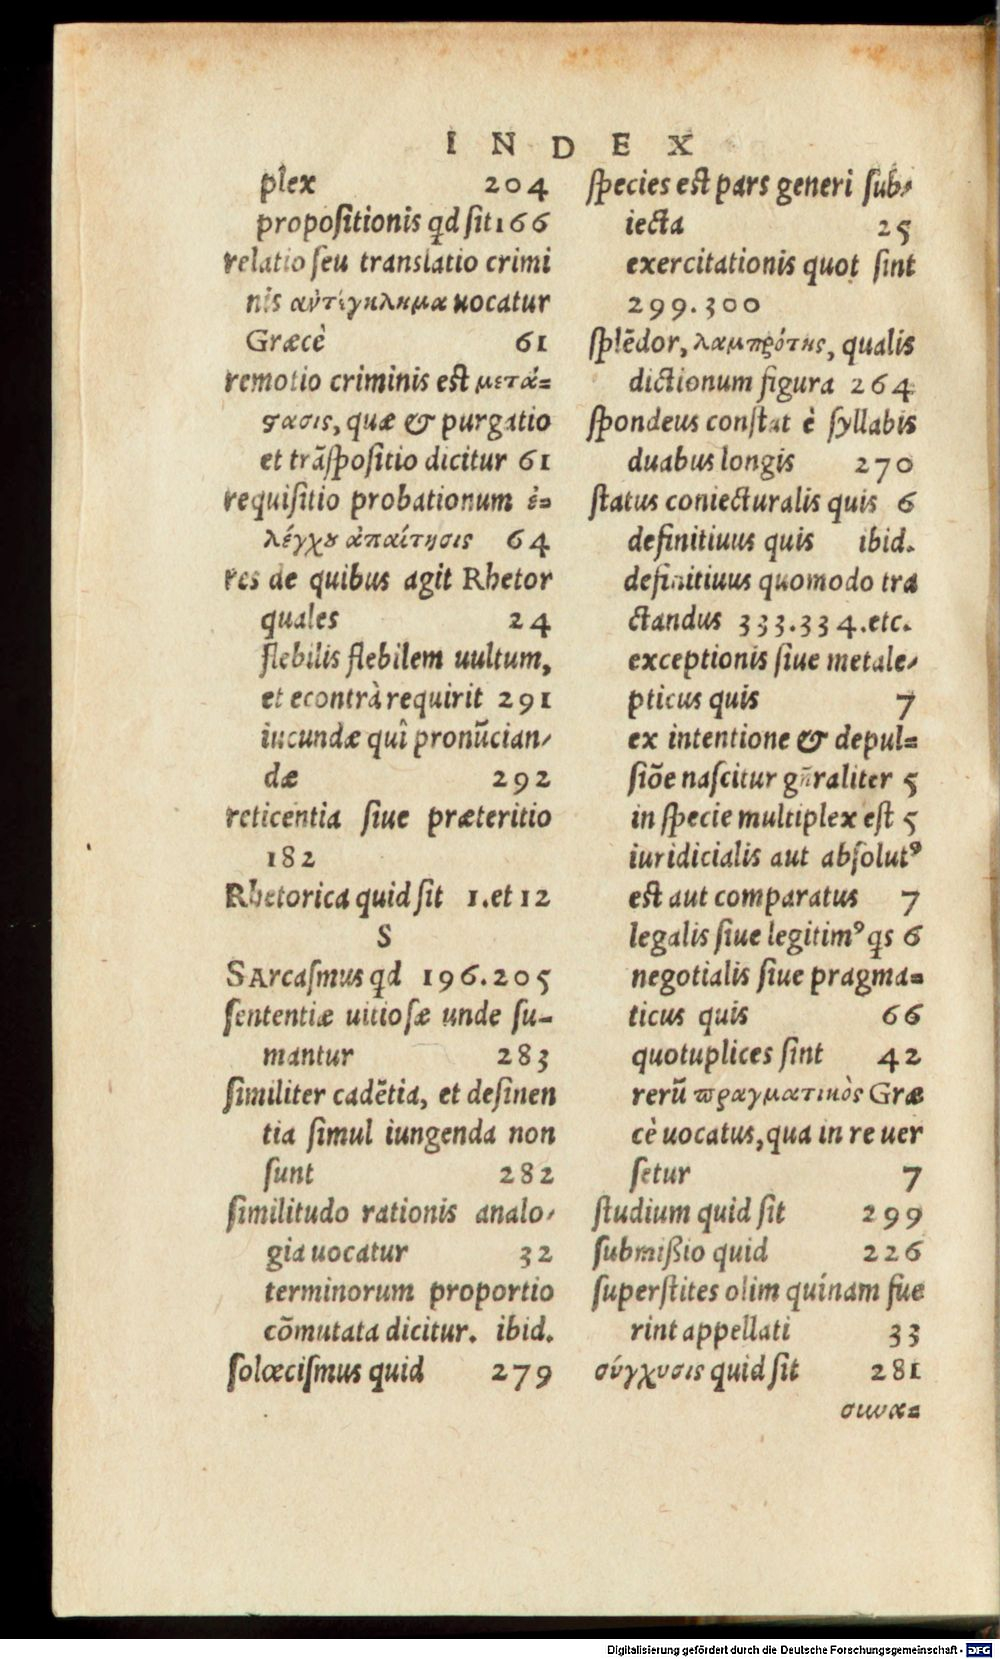 INDEX
plex 204
propositionis qd sit 166
relatio seu translatio crimi
nis αντίγκλημα uocatur
Græcè 61
remotio criminis est μετά-
ϛασις, quæ & purgatio
et trãspositio dicitur 61
requisitio probationum ἐ-
λέγχȣ ἀπαίτησις 64
res de quibus agit Rhetor
quales 24
flebilis flebilem uultum,
et econtrà requirit 291
iucundæ quî pronũcian-
dæ 292
reticentia siue præteritio
182
Rhetorica quid sit 1.et 12
S
SArcasmus qd 196.205
sententiæ uitiosæ unde su-
mantur 283
similiter cadẽtia, et desinen
tia simul iungenda non
sunt 282
similitudo rationis analo-
gia uocatur 32
terminorum proportio
cõmutata dicitur. ibid.
solœcismus quid 279
species est pars generi sub-
iecta 25
exercitationis quot sint
299.300
splẽdor, λαμπρότης, qualis
dictionum figura 264
spondeus constat è syllabis
duabus longis 270
status coniecturalis quis 6
definitiuus quis ibid.
definitiuus quomodo tra
ctandus 333.334.etc.
exceptionis siue metale-
pticus quis 7
ex intentione & depul-
siõe nascitur gñraliter 5
in specie multiplex est 5
iuridicialis aut absolutꝰ
est aut comparatus 7
legalis siue legitimꝰ qs 6
negotialis siue pragma-
ticus quis 66
quotuplices sint 42
rerũ πραγματικὸς Græ
cè uocatus, qua in re uer
setur 7
studium quid sit 299
submißio quid 226
superstites olim quínam fue
rint appellati 33
σύγχυσις quid sit 281
συνα-
Digitalisierung gefördert durch die Deutsche Forschungsgemeinschaft - DFG